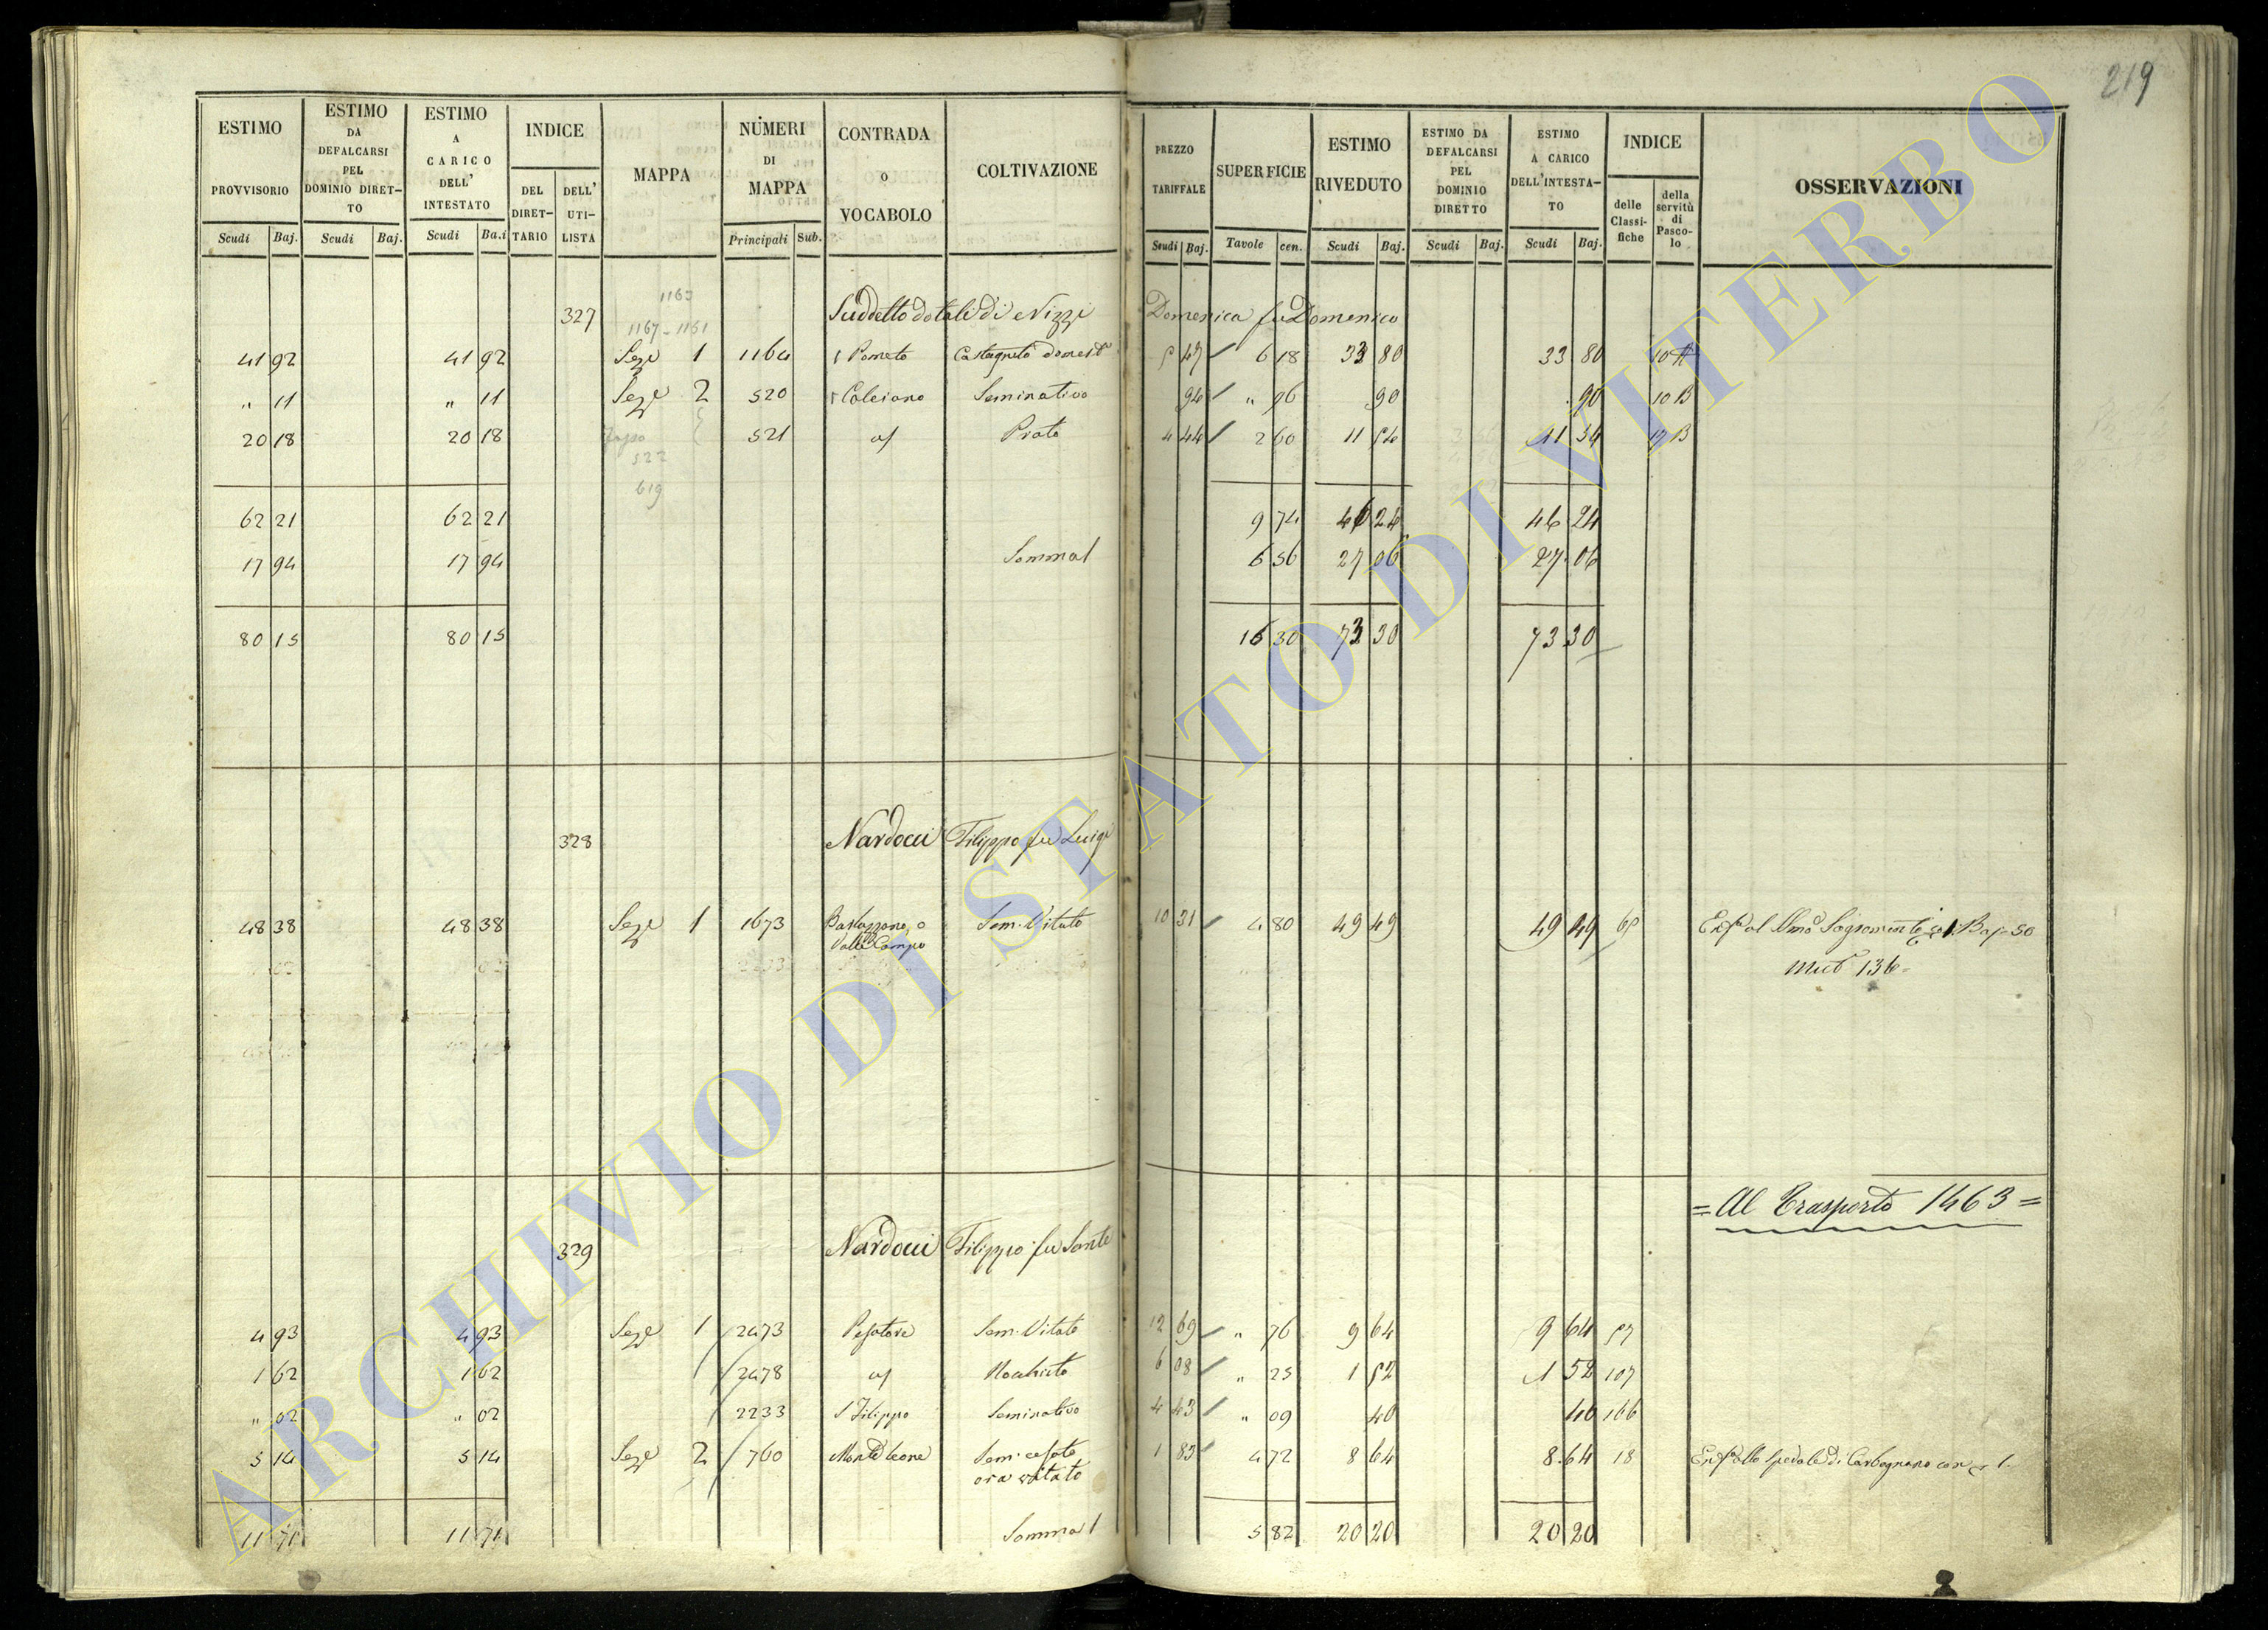 219
ESTIMO PROVVISORIO | ESTIMO DA DEFALCARSI PEL DOMINIO DIRETTO | ESTIMO A CARICO DELL' INTESTATO | INDICE | MAPPA | NUMERI DI MAPPA | CONTRADA O VOCABOLO | COLTIVAZIONE | PREZZO TARIFFALE | SUPERFICIE | ESTIMO RIVEDUTO | ESTIMO DA DEFALCARSI PEL DOMINIO DIRETTO | ESTIMO A CARICO DELL'INTESTATO | INDICE | OSSERVAZIONI
Scudi | Baj. | Scudi | Baj. | Scudi | Ba.i | DEL DIRETTARIO | DELL' UTILISTA | Principali | Sub. | Scudi | Baj. | Tavole | cen. | Scudi | Baj. | Scudi | Baj. | Scudi | Baj. | delle Classifiche | della servitù di Pascolo
1163
327 | Suddetto dotale di Nizzi Domenica fu Domenico
1167 - 1161
41 92 | 41 92 | Seze 1 | 1164 | Pometo | Castagneto domest | 5 47 | 6 18 | 33 80 | 33 80 | 10 A
" 11 | " 11 | Seze 2 | 520 | Coleiano | Seminativo | 94 | " 96 | 90 | 90 | 10 B
20 18 | 20 18 | 521 | Prato | 4 44 | 2 60 | 11 54 | 11 54 | 17 B
522
619
62 21 | 62 21 | 9 74 | 46 24 | 46 24
17 94 | 17 94 | Somma | 6 56 | 27 06 | 27 06
80 15 | 80 15 | 16 30 | 73 30 | 73 30
328 | Nardocci Filippo fu Luigi
48 38 | 48 38 | Seze 1 | 1673 | Bastazzano, o | Sem. Vitato | 10 31 | 4 80 | 49 49 | 49 49 | Baj 50
Valle Campo
136
= Al Trasporto 1463 =
329 | Nardocci Filippo fu Sante
4 93 | 4 93 | Seze 1 | 2473 | Pesatore | Sem. Vitato | 12 69 | " 76 | 9 64 | 9 64 | 57
1 62 | 1 62 | 2478 | Nocchieto | 6 08 | " 25 | 1 52 | 1 52 | 107
" 02 | " 02 | 2233 | S Filippo | Seminativo | 4 43 | " 09 | 40 | 40 | 166
5 14 | 5 14 | Seze 2 | 760 | Monte leone | Sem. cesato | 1 83 | 4 72 | 8 64 | 8 64 | 18 | Spedale di Carbognano con 1
ora vitato
11 71 | 11 71 | Somma | 5 82 | 20 20 | 20 20
ARCHIVIO DI STATO DI VITERBO